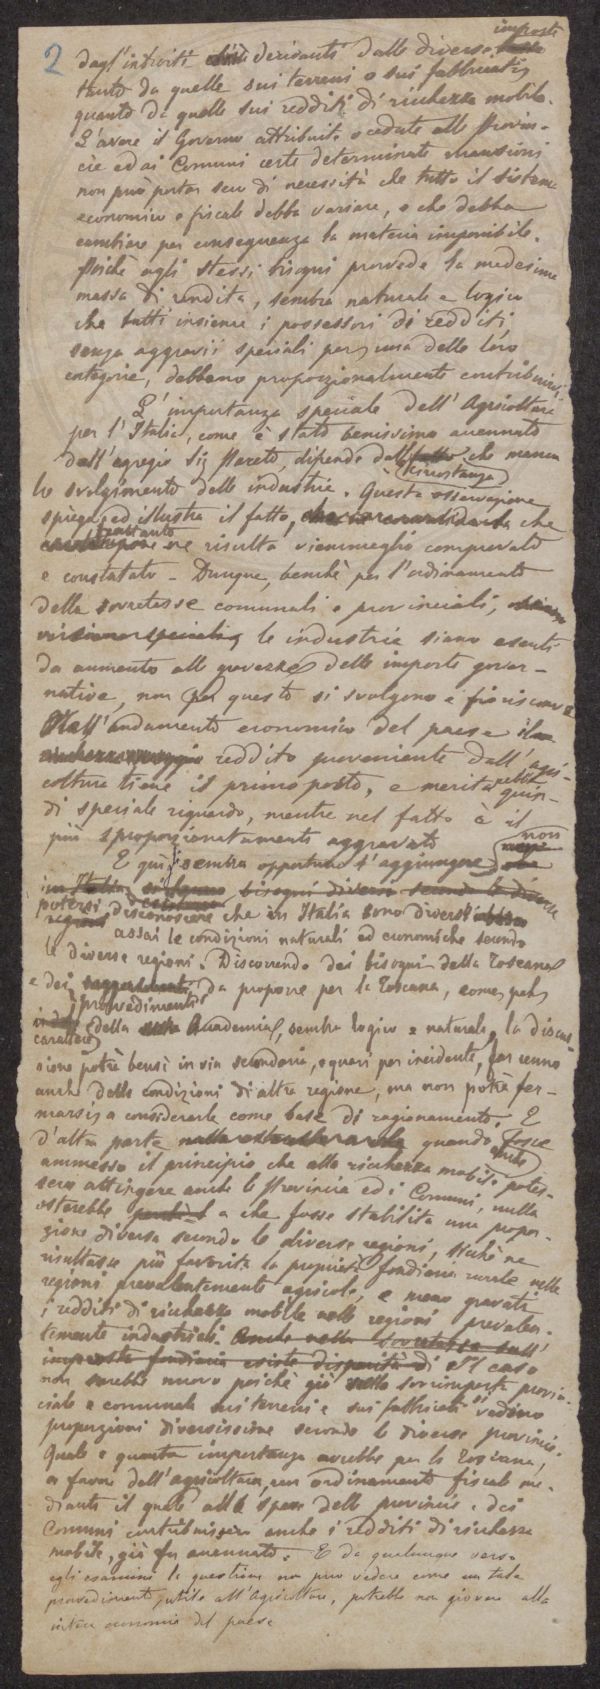 2
imposte
dagl'introiti derivanti dalle diverse
tanto da quelle sui terreni o sui fabbricati,
quanto da quelle sui redditi di ricchezza mobile.
L'avere il Governo attribuite o cedute alle Provin-
cie ed ai Comuni certe determinate mansioni
non può portar seco di necessità che tutto il sistema
economico e fiscale debba variare, o che debba
cambiare per conseguenza la materia imponibile.
Poichè agli stessi bisogni provvede la medesima
massa di rendita, sembra naturale e logico
che tutti insieme i possessori di redditi,
senza aggravii speciali per una delle loro
categorie, debbano proporzionalmente contribuirvi.
L'importanza speciale dell'Agricoltura
per l'Italia, come è stato benissimo accennato
dall'egregio Sig Pareto, dipende dal fatto che manca
circostanza
lo svolgimento delle industrie. Questa osservazione
spiega ed illustra il fatto, che
frattanto ne risulta viemmeglio comprovato
e constatato - Dunque, benchè per l'ordinamento
della sovretasse comunali e provinciali,
le industrie siano esenti
da aumento alle gravezze delle imposte gover-
native, non per questo si svolgono e fioriscono e
Nell'andamento economico del paese il
reddito proveniente dall'agri-
coltura tiene il primo posto, e merita quin-
di speciale riguardo, mentre nel fatto è il
più sproporzionatamente aggravato
non
E qui sembra opportuno l'aggiungere
in Italia bisogni diversi secondo le diverse
potersi disconoscere che in Italia sono diversi
regioni assai le condizioni naturali ed economiche secondo
le diverse regioni. Discorrendo dei bisogni della Toscana
e dei da proporre per la Toscana, come pel
provvedimenti
carattere della Accademia, sembra logico e naturale, la discus-
sione potrà bensì in via secondaria, e quasi per incidente, far cenno
anche delle condizioni di altre regione, ma non potrà fer-
marsi a considerarle come base di ragionamento. E
d'altra parte quando fosse
ammesso il principio che alla ricchezza mobile potes-
anche
sero attingere anche le Provincie ed i Comuni, nulla
osterebbe a che fosse stabilita una propor-
zione diversa secondo le diverse regioni, sicchè ne
risultasse più favorita la proprietà fondiaria rurale nelle
regioni prevalentemente agricole, e meno gravati
i redditi di ricchezza mobile nelle regioni prevalen-
temente industriali. Anche nella sovratassa sull'
imposta fondiaria esiste disparità di Il caso
non sarebbe nuovo poichè già nella sovrimposta provin-
ciale e comunale sui terreni e sui fabbricati vediamo
proporzioni diversissime secondo le diverse provincie.
Quale e quanta importanza avrebbe per la Toscana,
a favore dell'agricoltura, un ordinamento fiscale me-
diante il quale alle spese delle provincie e dei
Comuni contribuissero anche i redditi di ricchezza
mobile, già fu accennato. E da qualunque verso
egli esamini la questione non può vedere come un tale
provvedimento, utile all'Agricoltura, potrebbe non giovare alla
intera economia del paese